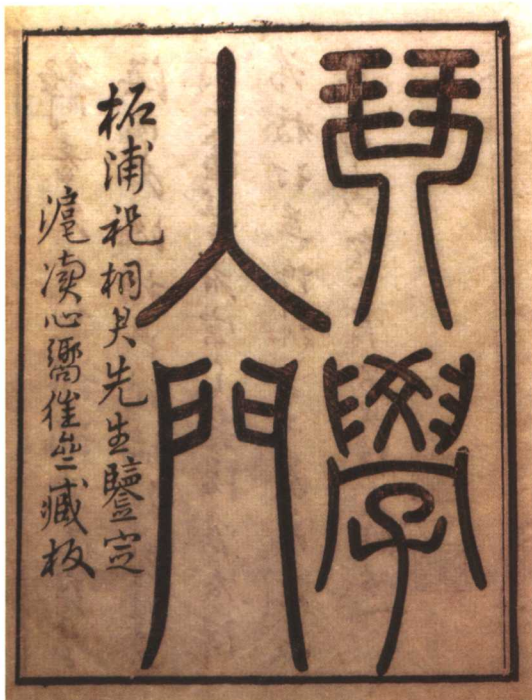 琴學
入門
柘浦祝桐君先生鑒定
滬瀆心嚮往亝藏板